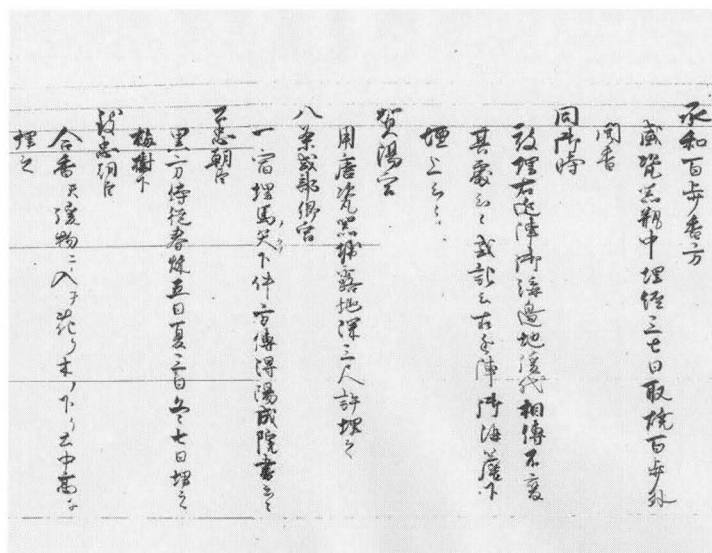 承和百歩香方
盛瓷器瓶中埋経三七日取焼百歩外
聞香
同御時
被埋右近陣御溝邉地後代相傳不変
其處云々或記云右近陣御溝
埋上云々
賀陽宮
用唐瓷器埋露地深三尺許埋之
八条式部卿宮
一宿埋馬矢下件方傳得陽成院書云々
公忠朝臣
黒方侍従春秋五日夏三日冬七日埋之
梅樹下
朝臣
合香ハ瓷物ニ入テ花ノ木ノ下ノ土中
埋之